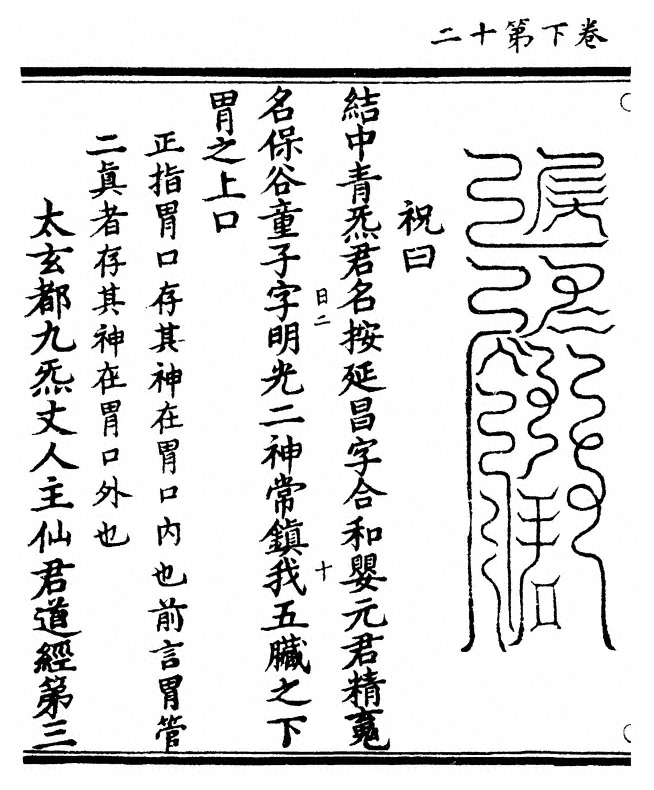 卷下第十二
祝曰
結中青炁君名按延昌字合和嬰元君精䰟
名保谷童子字明光二神常鎮我五臟之下
日二
十
胃之上口
正指胃口存其神在胃口內也前言胃管
二眞者存其神在胃口外也
太玄都九炁丈人主仙君道經第三